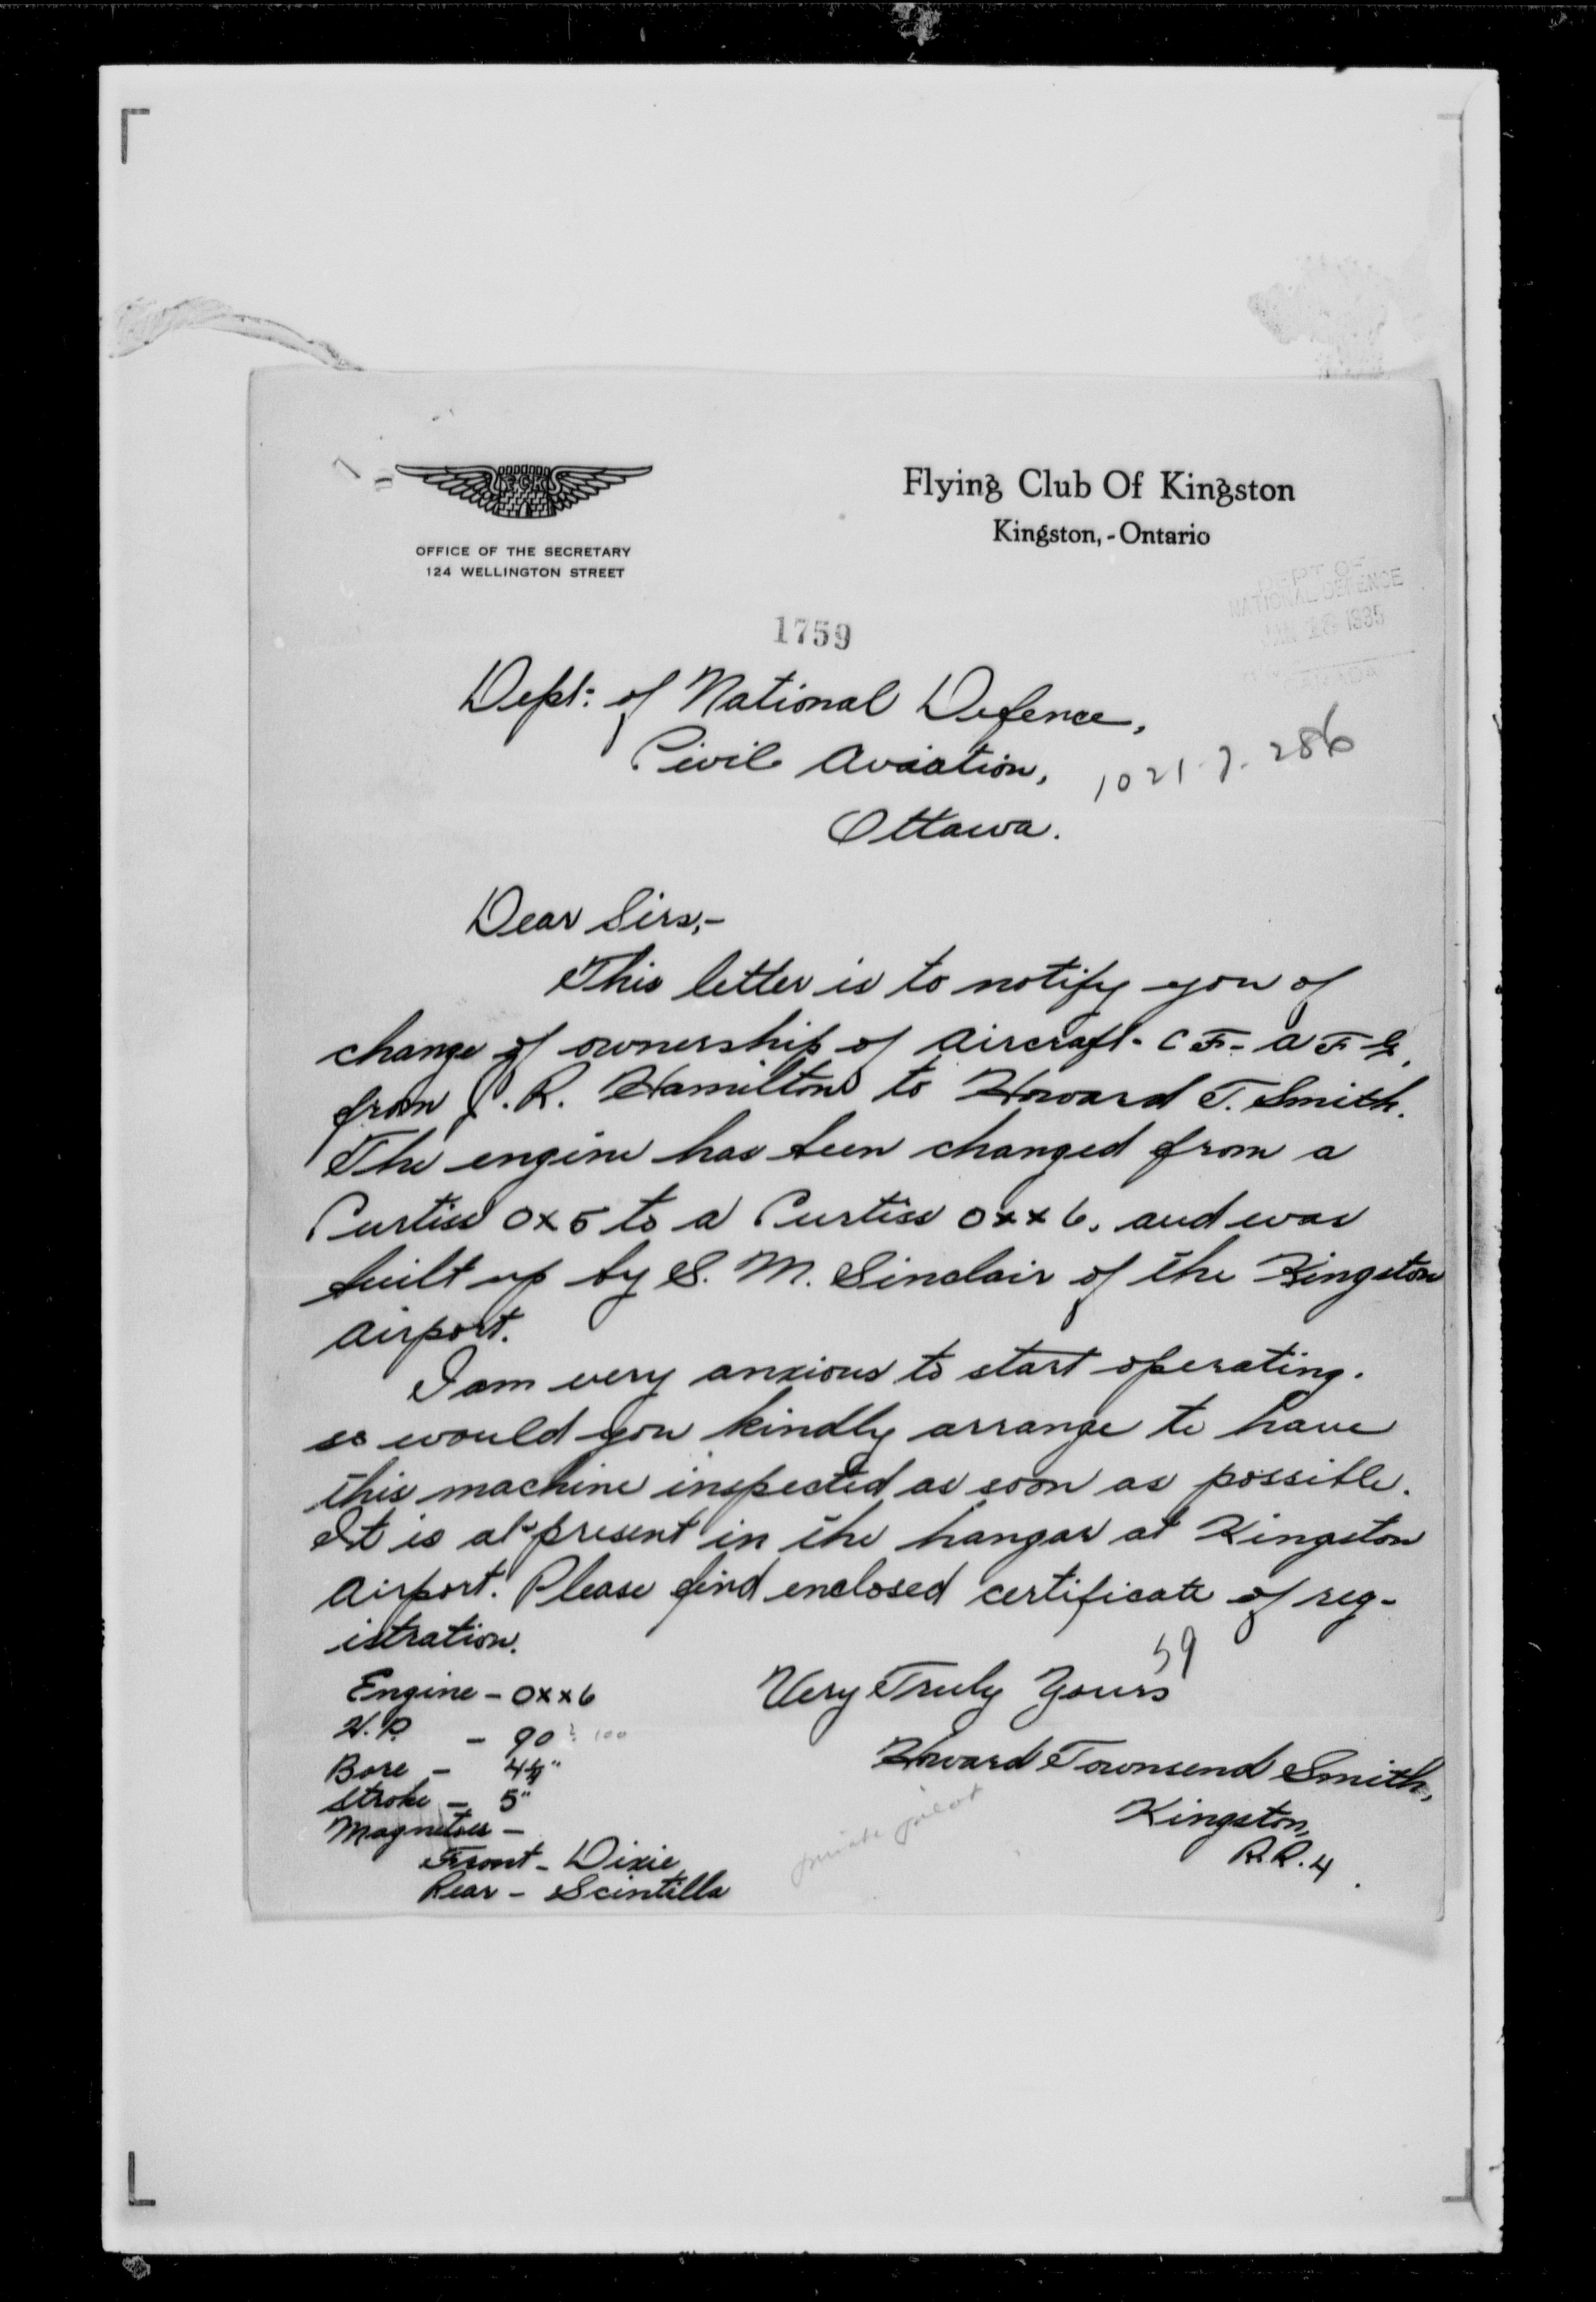 FCK
OFFICE OF THE SECRETARY
124 WELLINGTON STREET
Flying Club Of Kingston
Kingston, - Ontario
DEPT OF
NATIONAL DEFENCE
1935
CANADA
1759
Dept: of National Defence,
Civil Aviation,
1021-7-286
Ottawa.
Dear Sirs,-
This letter is to notify you of
change of ownership of aircraft - CF-AFG,
from J. R. Hamilton to Howard T. Smith.
The engine has been changed from a
Curtiss OX5 to a Curtiss OXX6, and was
built up by S. M. Sinclair of the Kingston
airport.
I am very anxious to start operating.
so would you kindly arrange to have
this machine inspected as soon as possible.
It is at present in the hangar at Kingston
airport. Please find enclosed certificate of reg-
istration.
59
Very Truly Yours
Howard Townsend Smith,
Kingston,
R.R. 4.
Engine - OXX6
H.P. - 90 ? 100
Bore - 4¼"
Stroke - 5"
Magnetoes -
Front - Dixie
Rear - Scintilla
private pilot